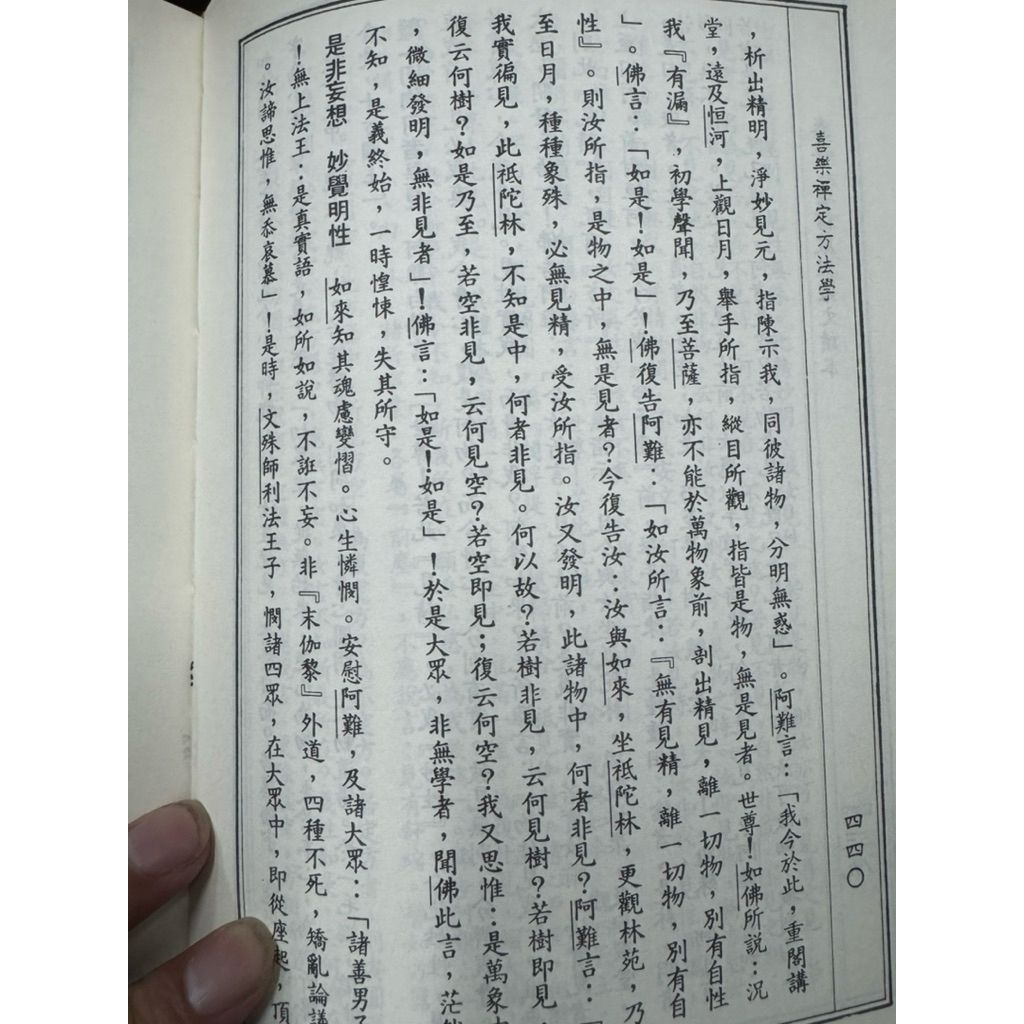 喜樂禪定方法學
四四〇
，析出精明，淨妙見元，指陳示我，同彼諸物，分明無惑」。阿難言：「我今於此，重閣講
堂，遠及恒河，上觀日月，舉手所指，縱目所觀，指皆是物，無是見者。世尊！如佛所說：況
我『有漏』，初學聲聞，乃至菩薩，亦不能於萬物象前，剖出精見，離一切物，別有自性
」。佛言：「如是！如是」！佛復告阿難：「如汝所言：『無有見精，離一切物，別有自
性』。則汝所指，是物之中，無是見者？今復告汝：汝與如來，坐祇陀林，更觀林苑，乃
至日月，種種象殊，必無見精，受汝所指。汝又發明，此諸物中，何者非見？阿難言：「
我實徧見，此祇陀林，不知是中，何者非見。何以故？若樹非見，云何見樹？若樹即見
復云何樹？如是乃至，若空非見，云何見空？若空即見；復云何空？我又思惟：是萬象
，微細發明，無非見者」！佛言：「如是！如是」！於是大眾，非無學者，聞佛此言，茫
不知，是義終始，一時惶悚，失其所守。
是非妄想　妙覺明性　如來知其魂慮變慴。心生憐憫。安慰阿難，及諸大眾：「諸善男
！無上法王：是真實語，如所如說，不誑不妄。非『末伽黎』外道，四種不死，矯亂論議
。汝諦思惟，無忝哀慕」！是時，文殊師利法王子，憫諸四眾，在大眾中，即從座起，頂